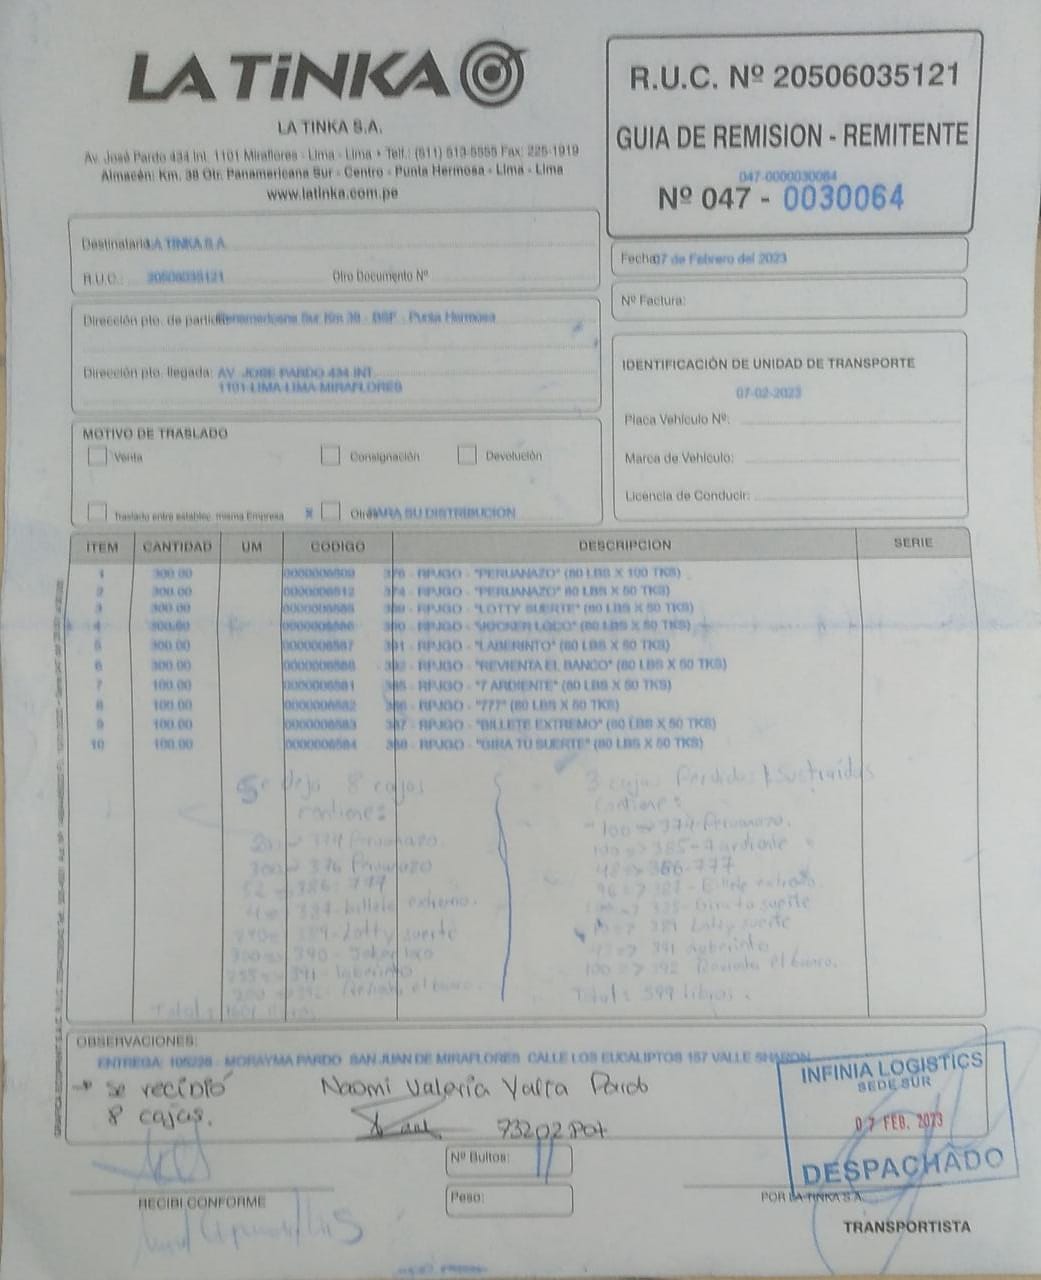 LA TiNKA
LA TINKA S.A.
Av. José Pardo 434 Int. 1101 Miraflores - Lima - Lima • Telf.: (511) 513-5555 Fax: 225-1919
Almacén: Km. 38 Otr. Panamericana Sur - Centro - Punta Hermosa - Lima - Lima
www.latinka.com.pe
R.U.C. Nº 20506035121
GUIA DE REMISION - REMITENTE
047-0000030064
Nº 047 - 0030064
Destinatario: LA TINKA S.A.
R.U.C.: 20506035121 Otro Documento Nº
Fecha: 07 de Febrero del 2023
Nº Factura:
Dirección pto. de partida: Panamericana Sur Km 38 - BSF - Punta Hermosa
Dirección pto. llegada: AV. JOSE PARDO 434 INT.
1101-LIMA-LIMA-MIRAFLORES
IDENTIFICACIÓN DE UNIDAD DE TRANSPORTE
07-02-2023
Placa Vehículo Nº:
Marca de Vehículo:
Licencia de Conducir:
MOTIVO DE TRASLADO
Venta Consignación Devolución
Traslado entre establec. misma Empresa X Otros PARA SU DISTRIBUCION
ITEM CANTIDAD UM CODIGO DESCRIPCION SERIE
1 300.00 376 - RPJGO - "PERUANAZO" (80 LBS X 100 TKS)
2 300.00 0000006512 374 - RPJGO - "PERUANAZO" 80 LBS X 50 TKS)
3 300.00 389 - RPJGO - "LOTTY SUERTE" (80 LBS X 50 TKS)
4 300.00 390 - RPJGO - "JOCKER LOCO" (80 LBS X 50 TKS)
5 300.00 0000006587 391 - RPJGO - "LABERINTO" (80 LBS X 50 TKS)
6 300.00 0000006588 392 - RPJGO - "REVIENTA EL BANCO" (80 LBS X 50 TKS)
7 100.00 0000006581 385 - RPJGO - "7 ARDIENTE" (80 LBS X 50 TKS)
8 100.00 0000006582 386 - RPJGO - "777" (80 LBS X 50 TKS)
9 100.00 0000006583 387 - RPJGO - "BILLETE EXTREMO" (80 LBS X 50 TKS)
10 100.00 0000006584 388 - RPJGO - "GIRA TU SUERTE" (80 LBS X 50 TKS)
Se deja 8 cajas
contiene:
374 Peruanazo.
300 => 376 Peruanazo
52 => 386: 777
387 - billete extremo.
389 - Lotty suerte
300 => 390 - Joker loco
391 - laberinto
Total:
3 cajas Perdidas / Sustraidas
contiene:
- 100 => 374 Peruanazo.
100 => 385 - 7 ardiente
48 => 386 - 777
96 => 387 - Billete extremo.
Gira tu suerte
389 Lotty suerte
391 laberinto
100 => 392 Revienta el banco.
Total: 599 libros.
OBSERVACIONES:
ENTREGA: 105238 - MORAYMA PARDO SAN JUAN DE MIRAFLORES CALLE LOS EUCALIPTOS 157 VALLE SHARON
→ se recibió
8 cajas.
Naomi Valeria Yalta Pardo
INFINIA LOGISTICS
SEDE SUR
07 FEB. 2023
DESPACHADO
Nº Bultos: 11
Peso:
RECIBI CONFORME
POR LA TINKA S.A.
TRANSPORTISTA